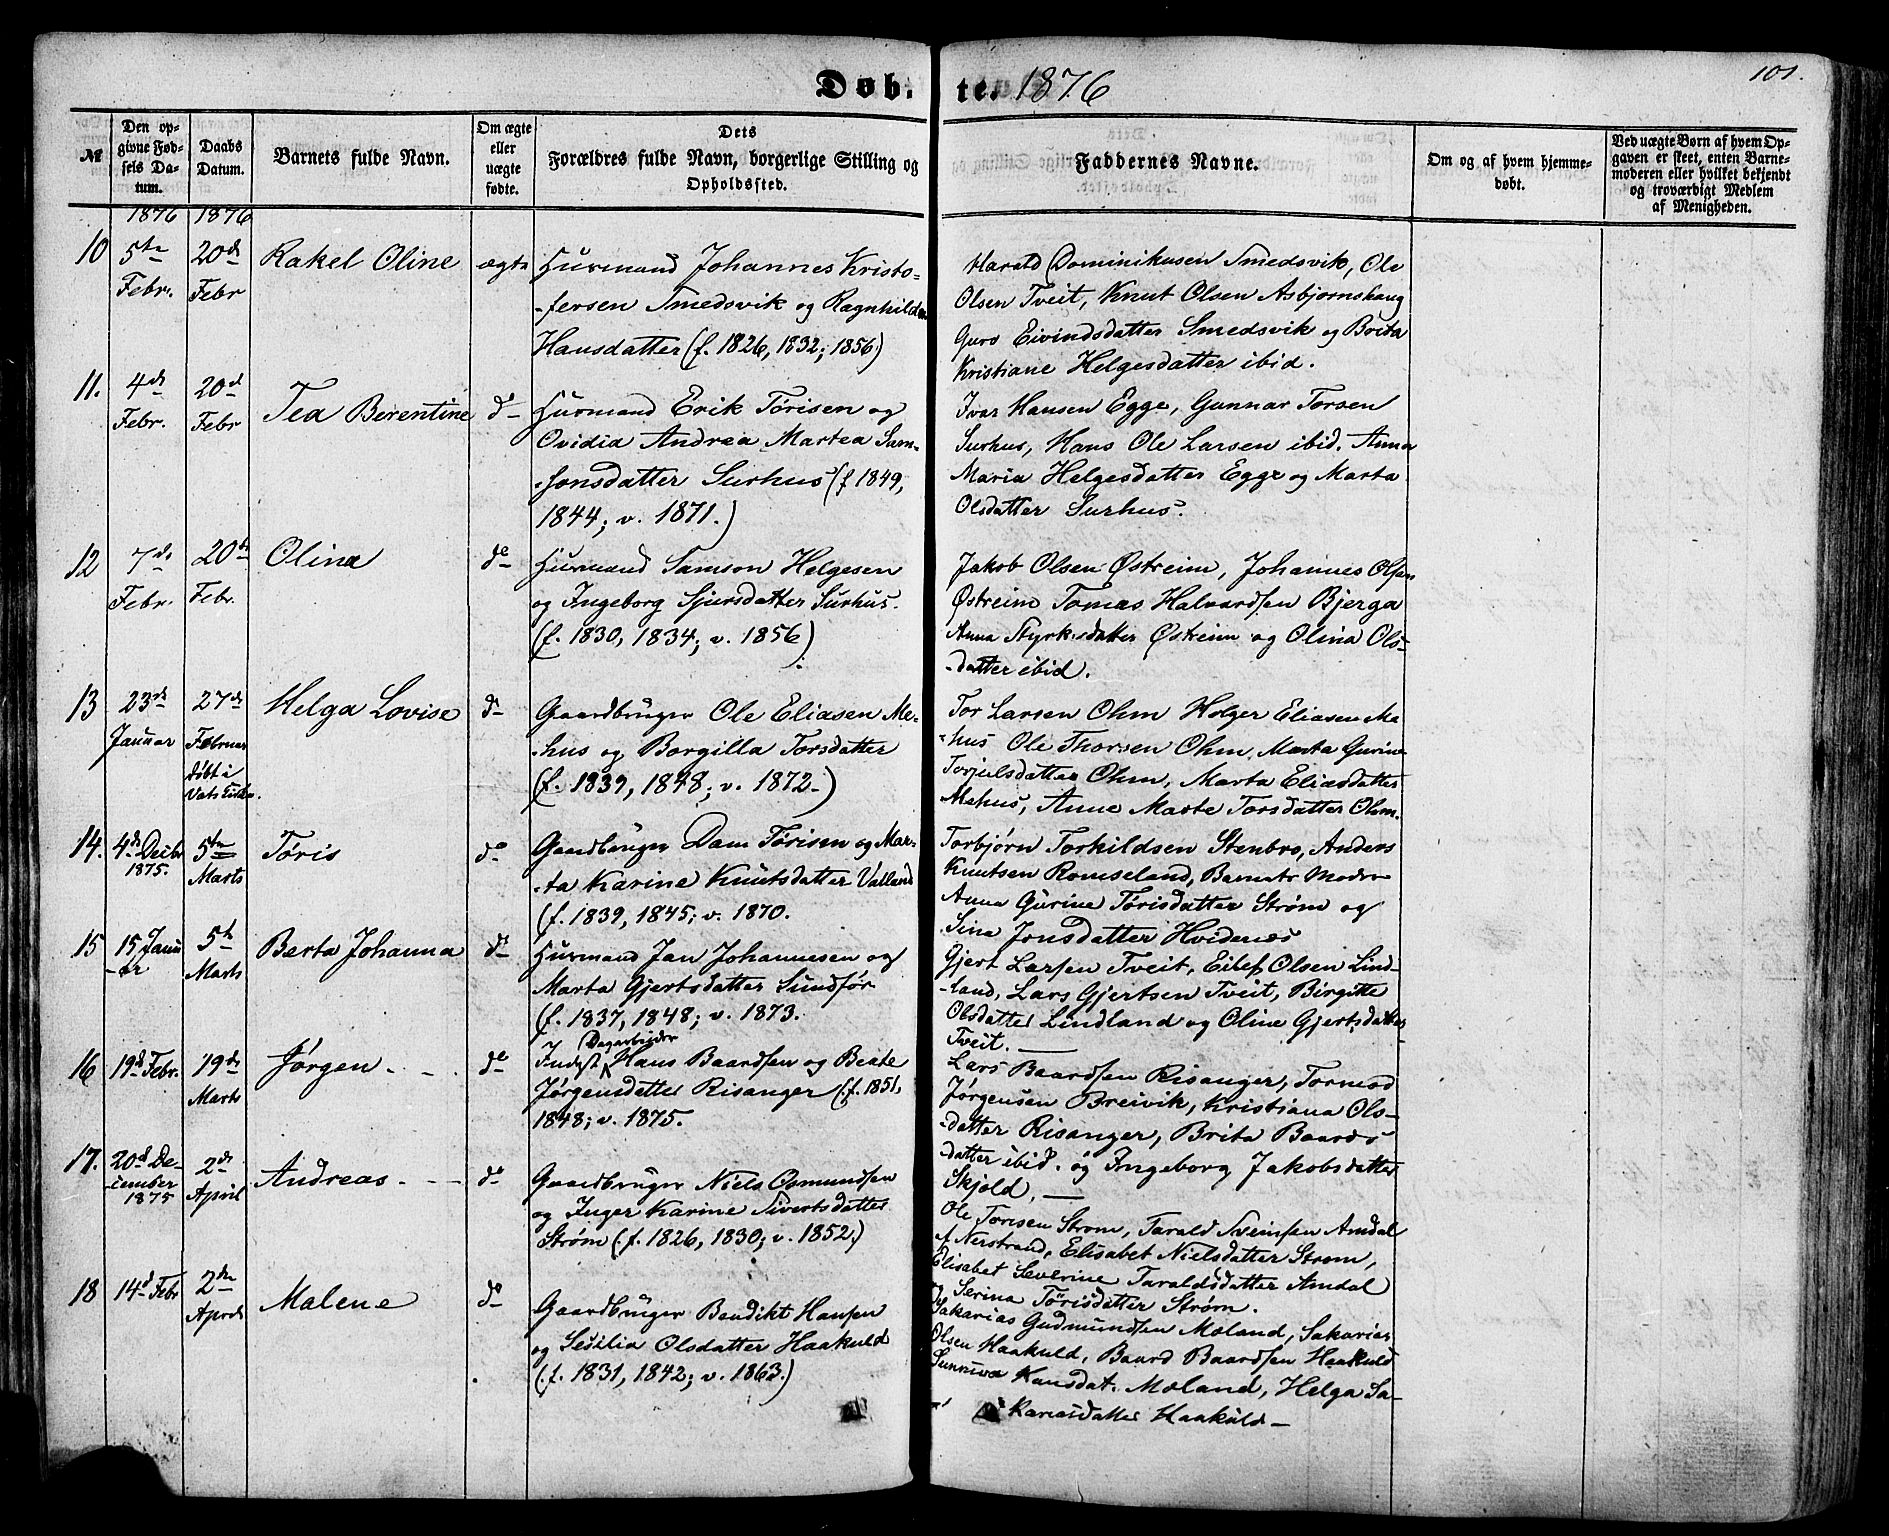 Døb. te. 1876
101.
№
Den op-
givne Fød-
sels Da-
tum.
Daabs
Datum.
Barnets fulde Navn.
Om ægte
eller
uægte
fødte.
Dets
Forældres fulde Navn, borgerlige Stilling og
Opholdssted.
Faddernes Navne.
Om og af hvem hjemme-
døbt.
Ved uægte Børn af hvem Op-
gaven er skeet, enten Barne-
moderen eller hvilket bekjendt
og troværdigt Medlem
af Menigheden.
1876 1876
10 5te Febr. 20de Febr Rakel Oline ægte
Husmand Johannes Kristo-
-fersen Smedsvik og Ragnhilde
Hansdatter (f. 1826, 1832; 1856)
Harald Dominikusen Smedsvik, Ole
Olsen Tveit, Knut Olsen Asbjørnshaug
Guro Eivindsdatter Smedsvik og Brita
Kristiane Helgesdatter ibid.
11. 4de Febr. 20d Febr Tea Berentine do
Husmand Erik Tørisen og
Ovidia Andrea Martea Sam-
-sonsdatter Surhus (f 1849,
1844; v. 1871.)
Ivar Hansen Egge, Gunnar Torsen
Surhus, Hans Ole Larsen ibid. Anna
Maria Helgesdatter Egge og Marta
Olsdatter Surhus.
12 7de Febr. 20de Febr. Olina do
Husmand Samson Helgesen
og Ingeborg Sjursdatter Surhus.
(f. 1830, 1834; v. 1856)
Jakob Olsen Østreim, Johannes Olsen
Østreim Tomas Halvardsen Bjerga
Anna Styrksdatter Østreim og Olina Ols-
-datter ibid.
13 23de Januar 27de Februar døbt i Vats Kirke. Helga Lovise do
Gaardbruger Ole Eliasen Me-
-hus og Borgilla Torsdatter
(f. 1839, 1848; v. 1872.)
Tor Larsen Ohm Holger Eliasen Me-
-hus Ole Thorsen Ohm, Marta Gurine
Torjulsdatter Ohm, Marta Eliasdatter
Mehus, Anne Marte Torsdatter Ohm.
14. 4de Decbr 1875. 5te Marts Tøris do
Gaardbruger Dam Tørisen og Mar-
-ta Karine Knutsdatter Valland
(f. 1839, 1845; v. 1870.
Torbjørn Torkildsen Stenbro, Anders
Knutsen Romseland, Barnets Moder
Anna Gurine Tørisdatter Strøm og
Sina Jonsdatter Hvidenæs
15 15 Janu-
-ar 5te Marts Berta Johanna do
Husmand Jan Johannesen og
Marta Gjertsdatter Sundfør
(f. 1837, 1848; v. 1873.
Gjert Larsen Tveit, Eilef Olsen Lind-
-land, Lars Gjertsen Tveit, Birgitte
Olsdatter Lindland og Oline Gjertsdatter
Tveit.
16 19d Febr. 19de Marts Jørgen do
Dagarbeider
Inderst Hans Baardsen og Beate
Jørgensdatter Risanger (f. 1851,
1848; v. 1875.
Lars Baardsen Risanger, Tormod
Jørgensen Breivik, Kristiana Ols-
-datter Risanger, Brita Baards-
-datter ibid. og Ingeborg Jakobsdatter
Skjold,
17. 20d De-
-cember 1875 2de April Andreas do
Gaardbruger Niels Osmundsen
og Inger Karine Sivertsdatter
Strøm (f. 1826, 1830; v. 1852.)
Ole Tørisen Strøm, Tarald Sveinsen Amdal
af Nerstrand, Elisabet Nielsdatter Strøm,
Elisabet Severine Taraldsdatter Amdal
og Serina Tørisdatter Strøm.
18 14d Febr 2den April Malene do
Gaardbruger Bendikt Hansen
og Sesilia Olsdatter Haakuld
(f. 1831, 1842; v. 1863.)
Sakarias Gudmundsen Moland, Sakarias
Olsen Haakuld, Baard Baardsen Haakuld
Sunniva Hansdat. Moland, Helga Sa-
kariasdatter Haakuld